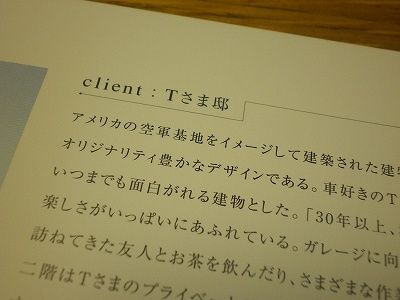 client : Tさま邸
アメリカの空軍基地をイメージして建築された建
オリジナリティ豊かなデザインである。車好きのT
いつまでも面白がれる建物とした。「30年以上、
楽しさがいっぱいにあふれている。ガレージに向
訪ねてきた友人とお茶を飲んだり、さまざまな作
二階はTさまのプライベート